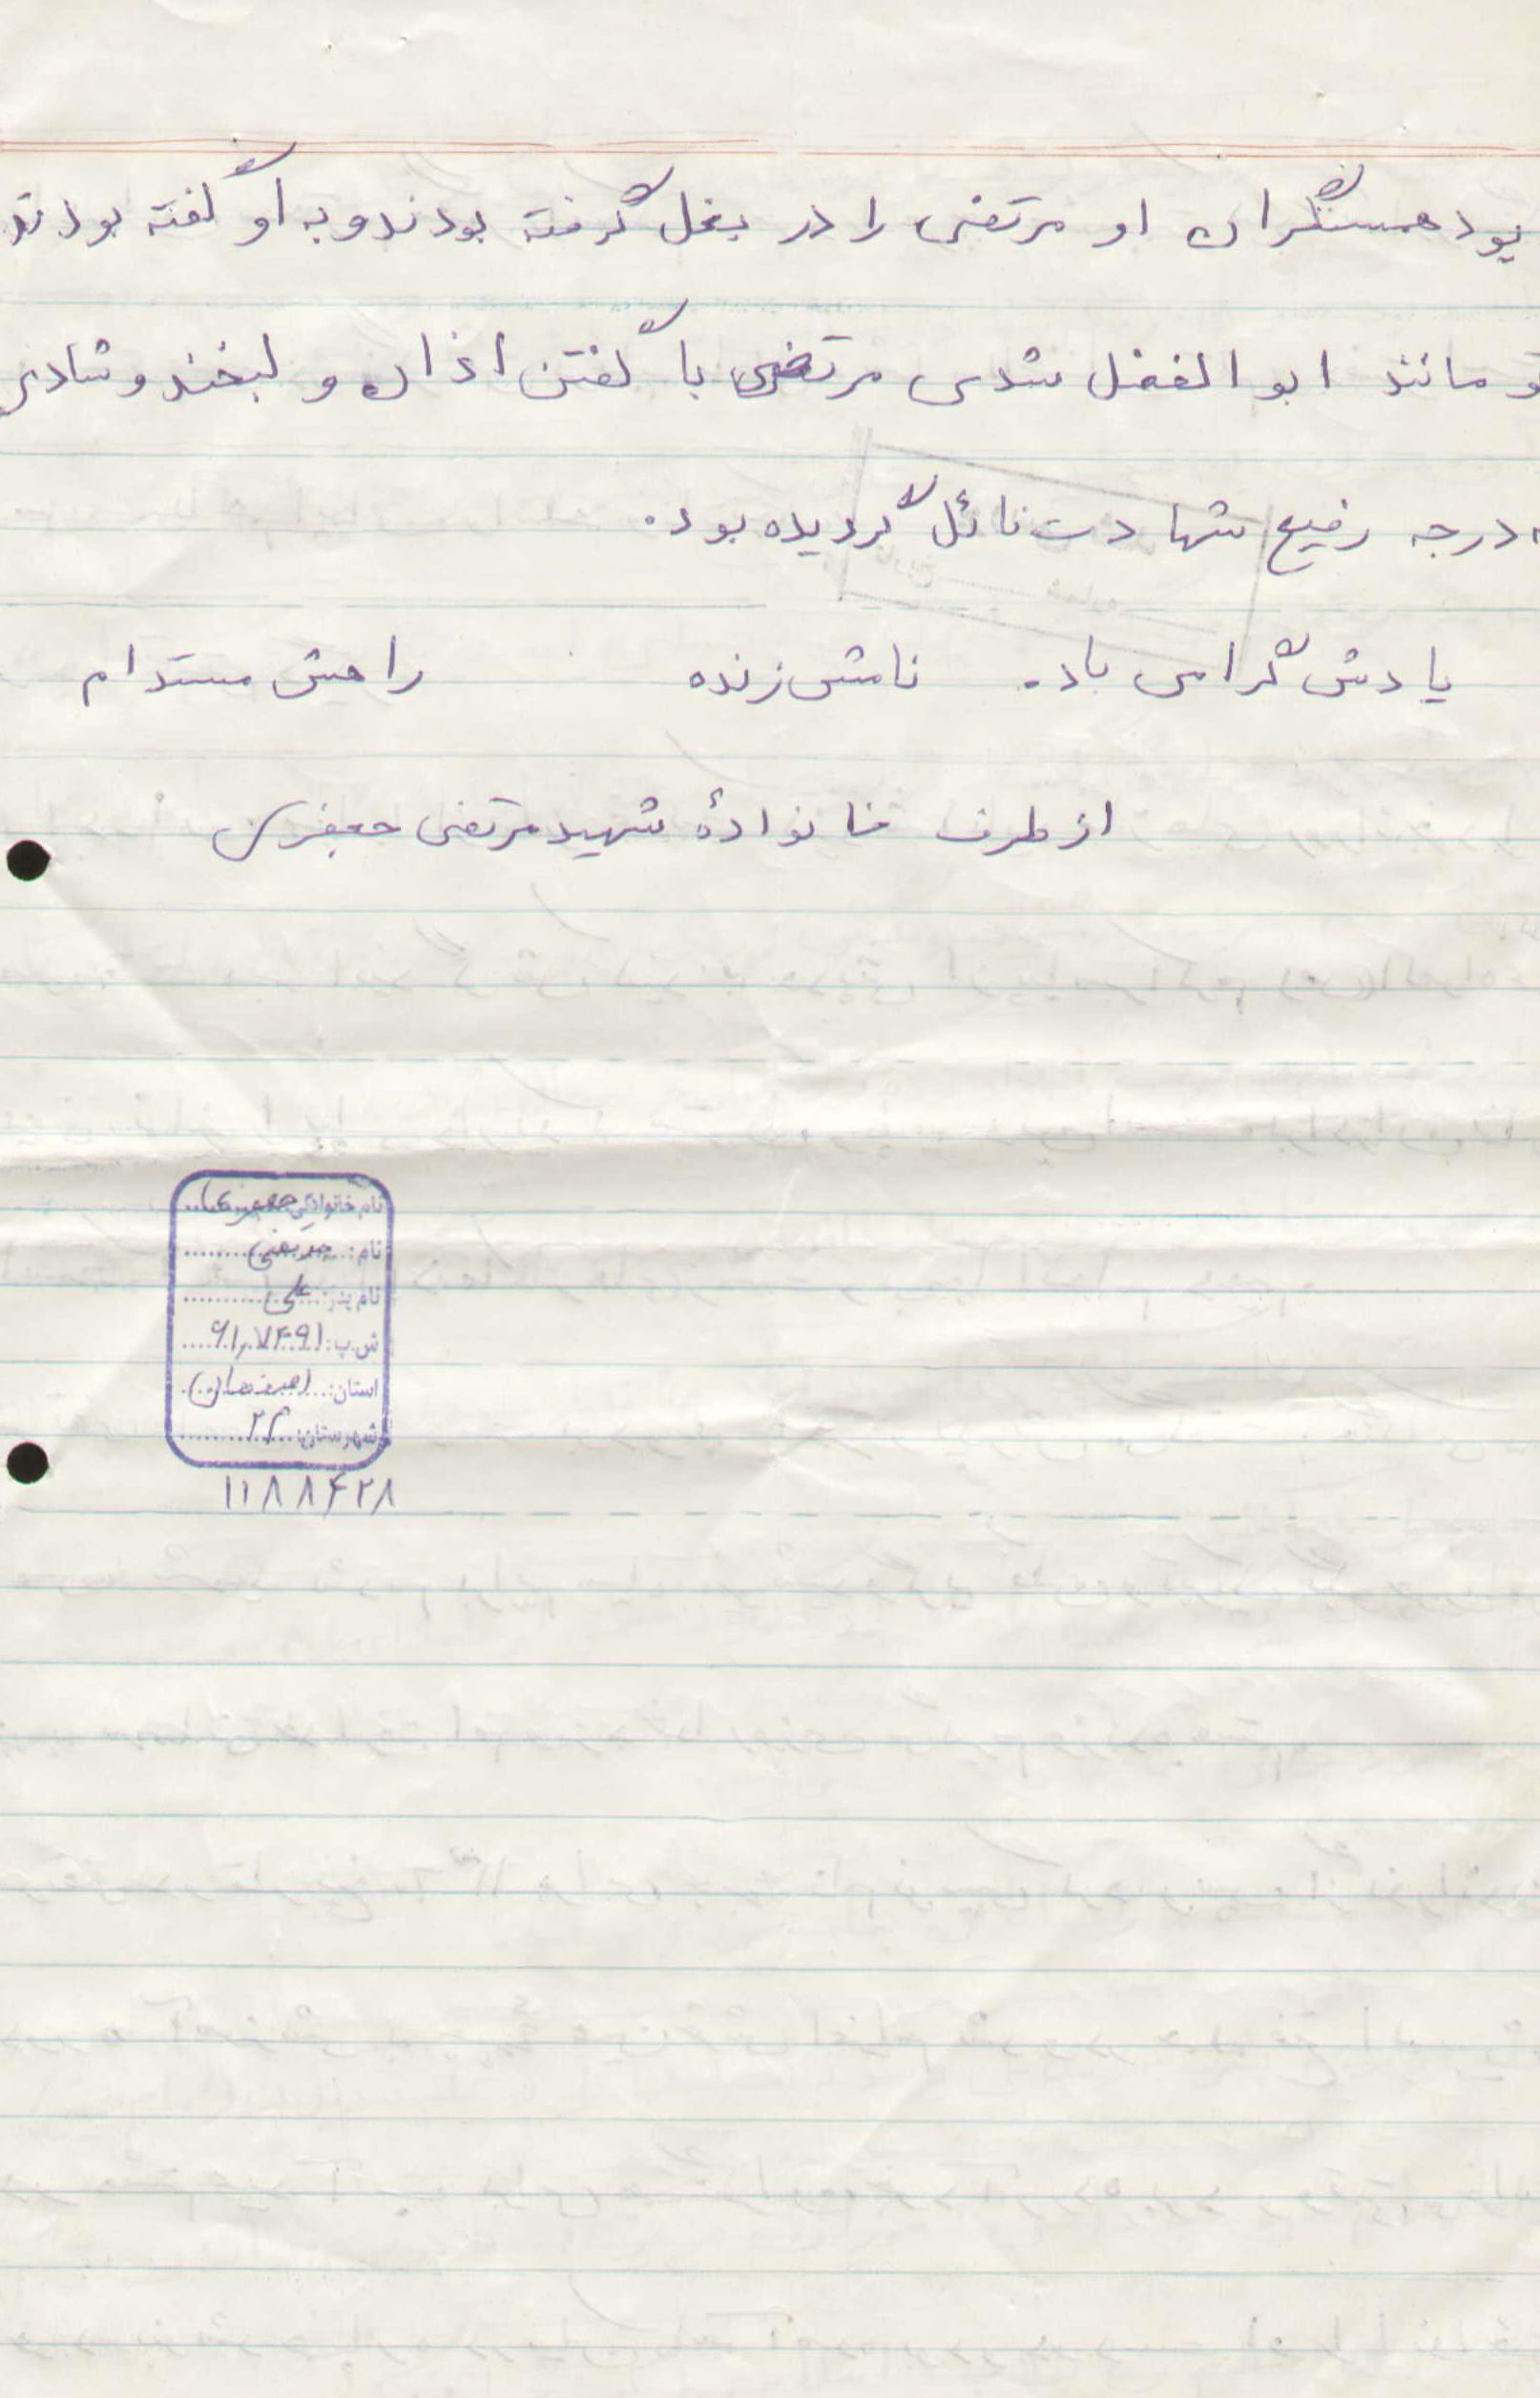 بود همسنگران او مرتضی را در بغل گرفته بودند و به او گفته بودند
تو مانند ابوالفضل شدی مرتضی با گفتن اذان و لبخند و شادی
درجه رفیع شهادت نائل گردیده بود.
یادش گرامی باد. نامش زنده راهش مستدام
از طرف خانوادهٔ شهید مرتضی جعفری
نام خانوادگی: جعفری
نام: مرتضی
نام پدر: علی
ش.پ:
استان: اصفهان
شهرستان:
۱۱۸۸۴۲۸